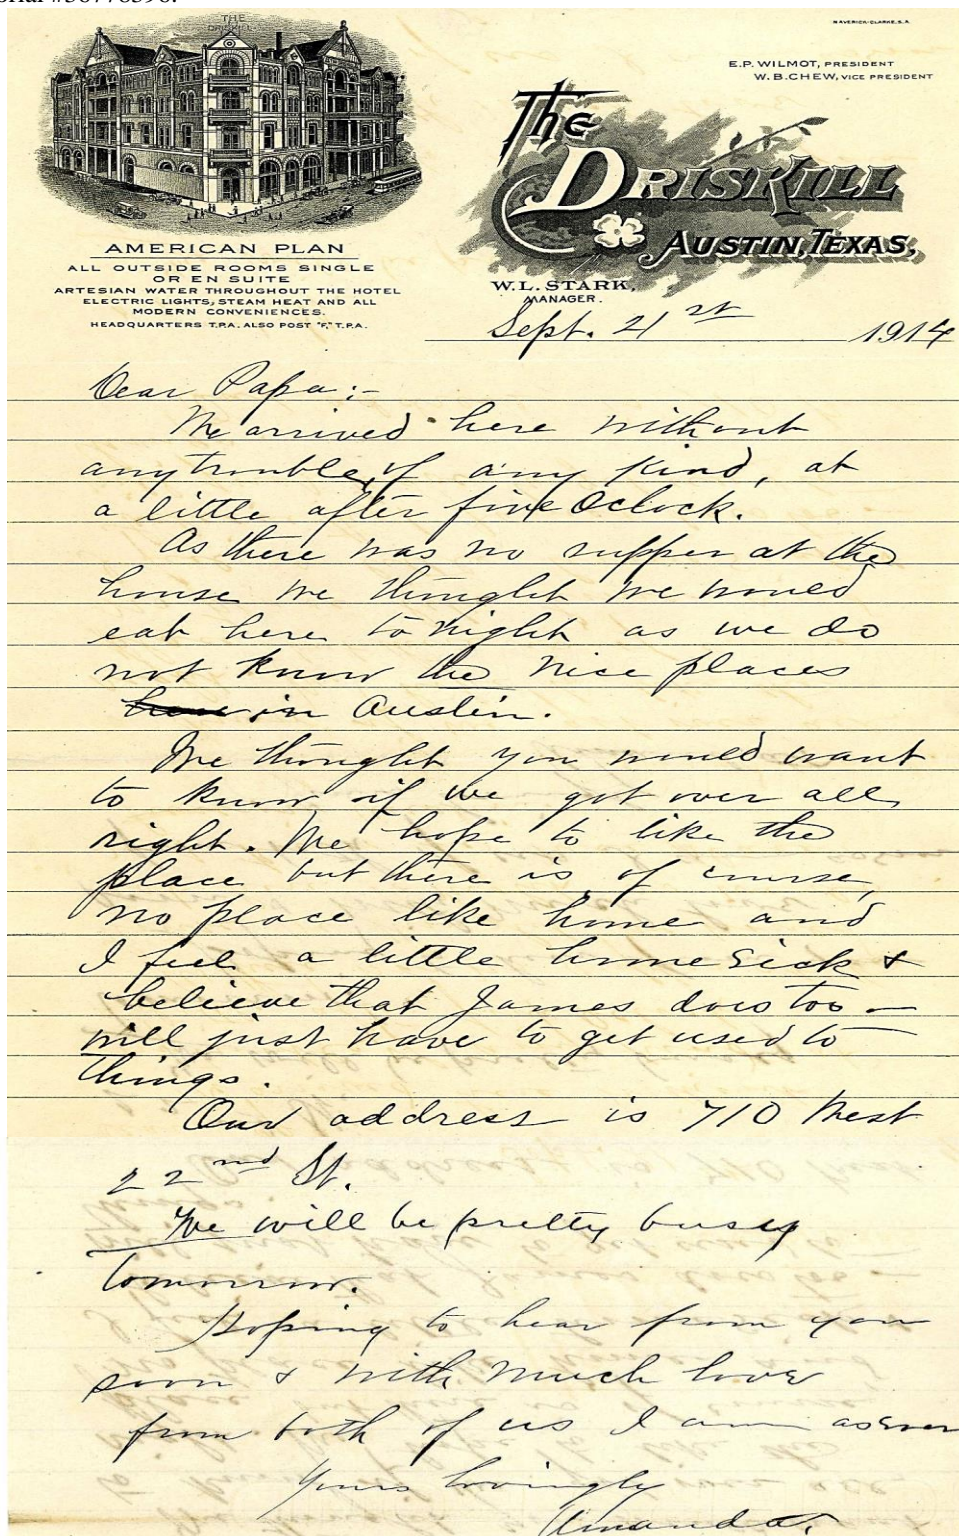 THE
DRISKILL
MAVERICK-CLARKE, S.A.
E.P. WILMOT, PRESIDENT
W.B. CHEW, VICE PRESIDENT
The
DRISKILL
AUSTIN, TEXAS,
W.L. STARK,
MANAGER.
AMERICAN PLAN
ALL OUTSIDE ROOMS SINGLE
OR EN SUITE
ARTESIAN WATER THROUGHOUT THE HOTEL
ELECTRIC LIGHTS, STEAM HEAT AND ALL
MODERN CONVENIENCES.
HEADQUARTERS T.P.A. ALSO POST "F," T.P.A.
Sept. 21st 1914
Dear Papa:-
We arrived here without
any trouble, of any kind, at
a little after five Oclock.
As there was no supper at the
house we thought we would
eat here to night as we do
not know the nice places
here in Austin.
We thought you would want
to know if we got over all
right. We hope to like the
place but there is of course,
no place like home and
I feel a little home sick &
believe that James does too —
will just have to get used to
things.
Our address is 710 West
22nd St.
We will be pretty busy
tomorrow.
Hoping to hear from you
soon & with much love
from both of us I am as ever
Yours lovingly
Amanda.